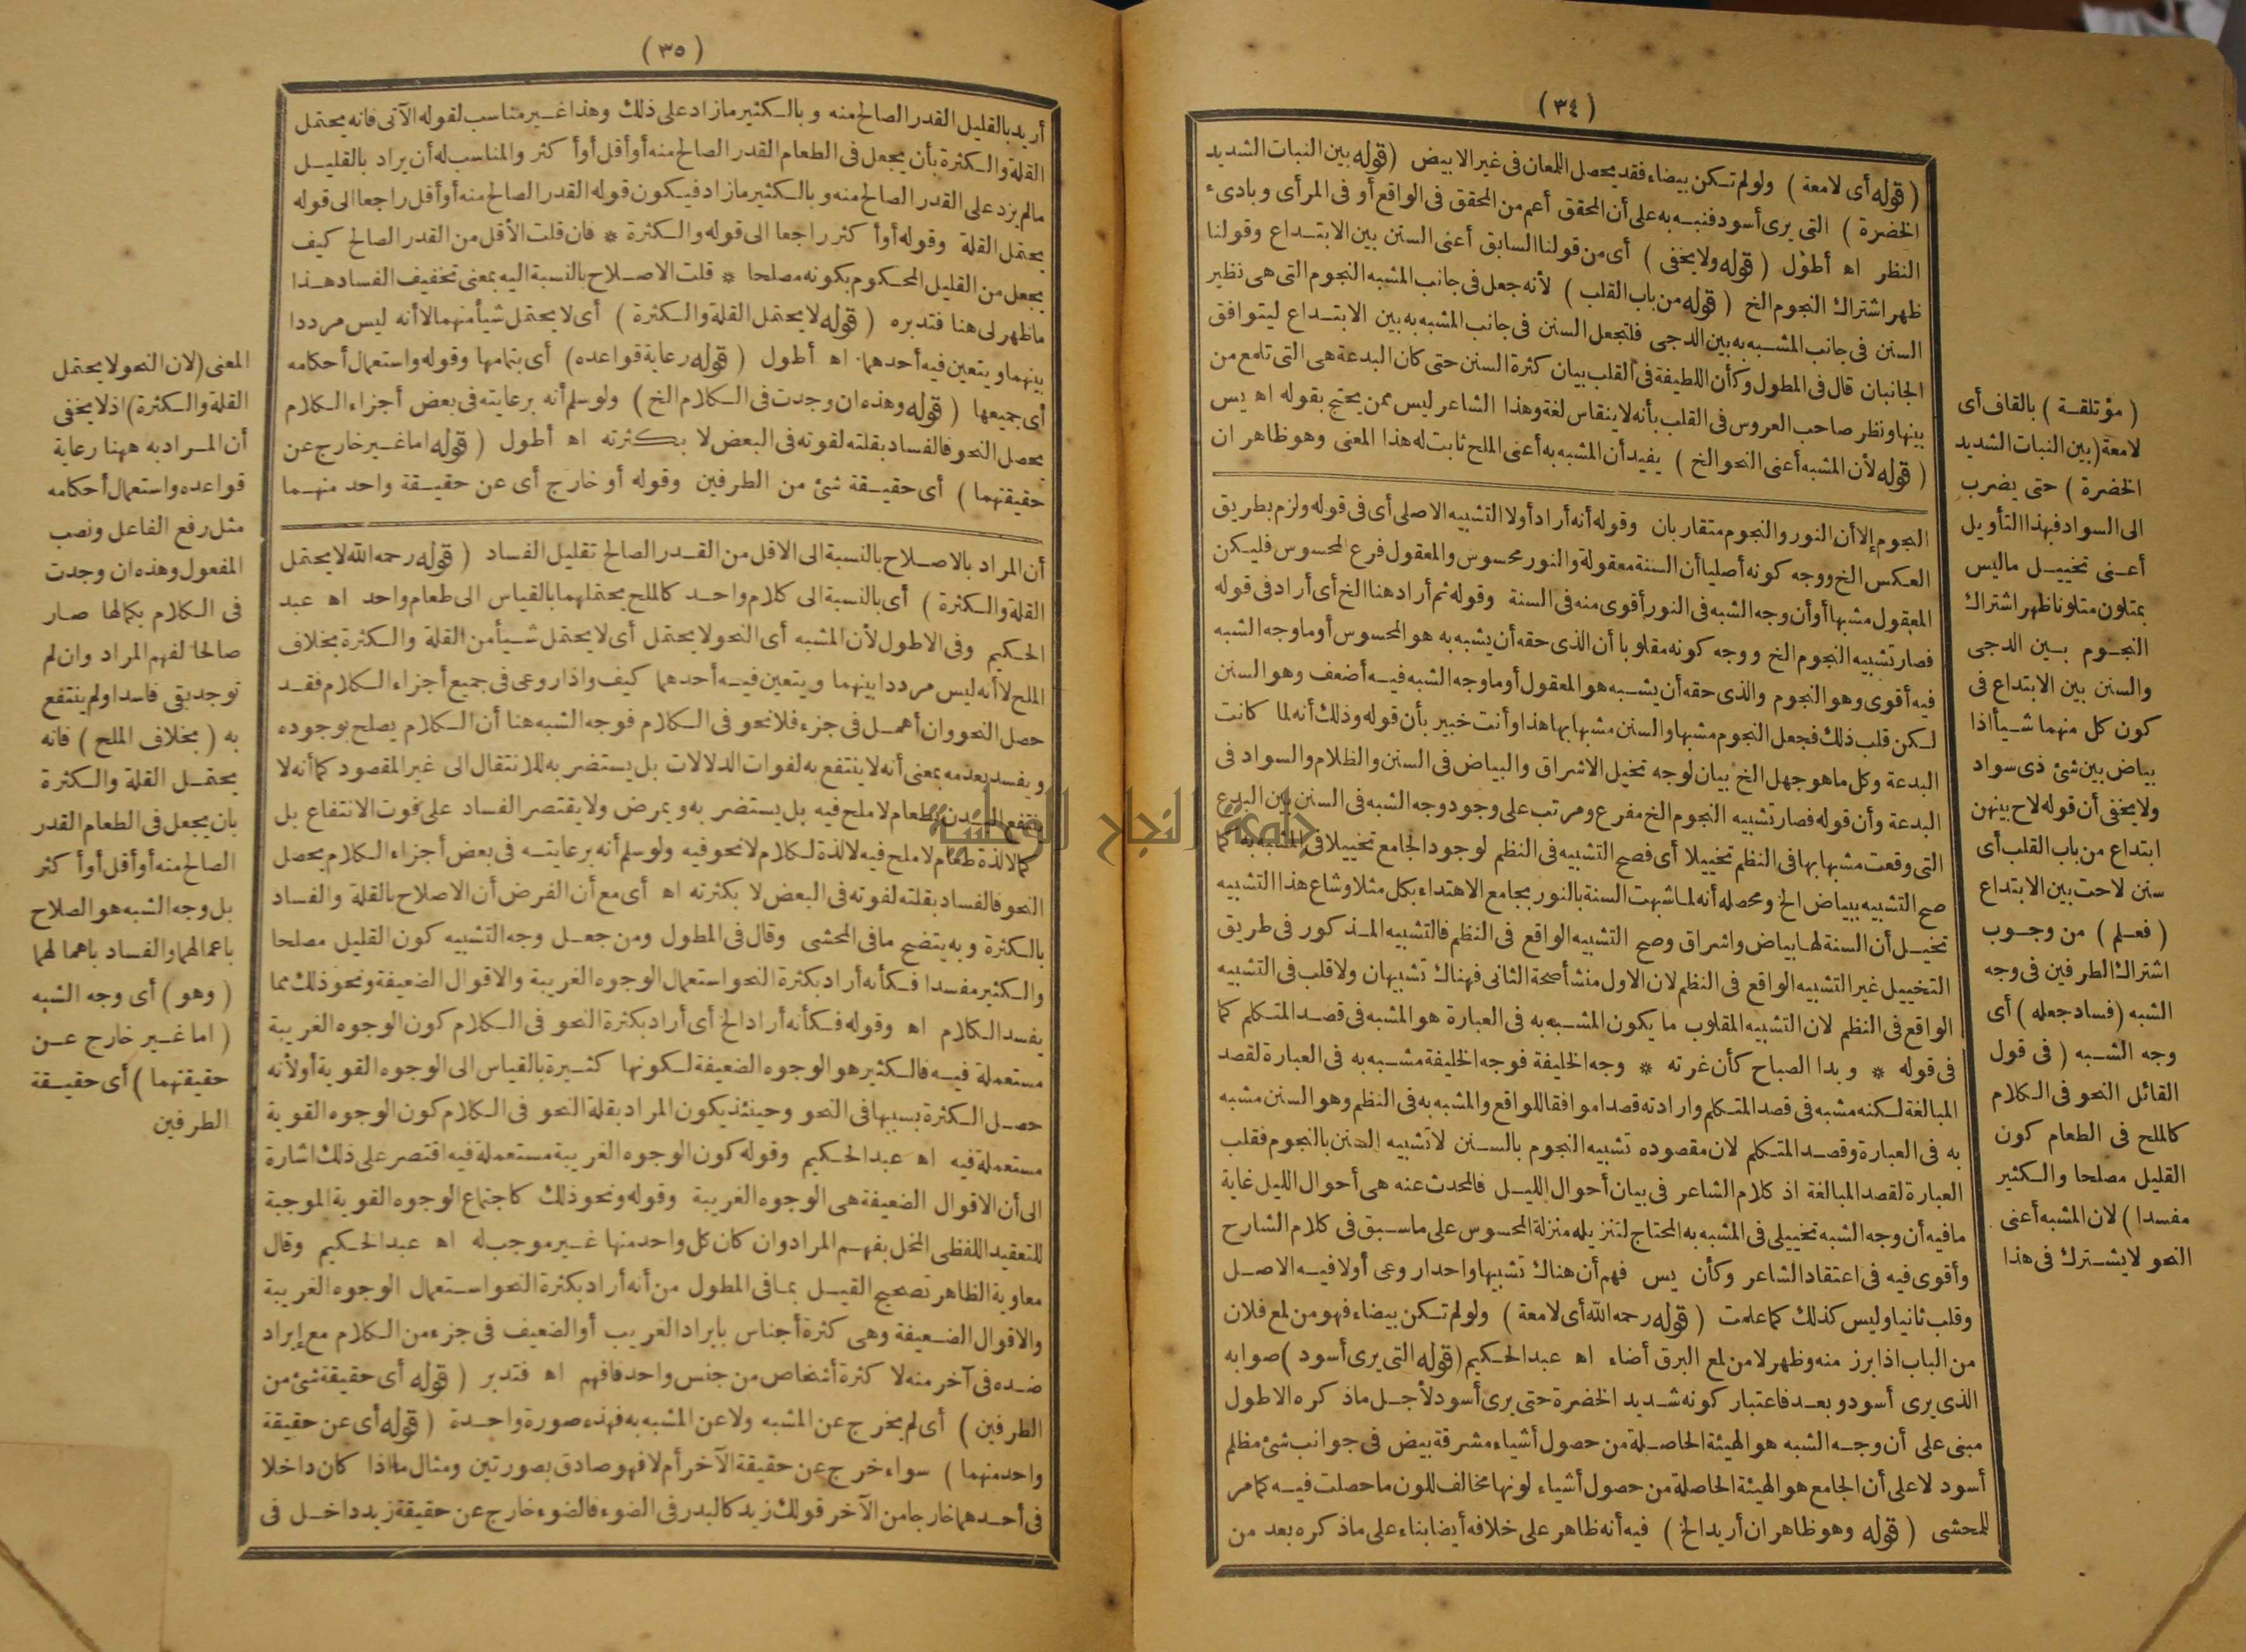 (٣٤)
(قوله أى لامعة) ولو لم تكن بيضاء فقد يحصل اللمعان فى غير الابيض (قوله بين النبات الشديد
الخضرة) التى يرى أسود فنبه به على أن المحقق أعم من المحقق فى الواقع أو فى المرأى وبادىء
النظر اه أطول (قوله ولا يخفى) أى من قولنا السابق أعنى السنن بين الابتداع وقولنا
ظهر اشتراك النجوم الخ (قوله من باب القلب) لأنه جعل فى جانب المشبه النجوم التى هى نظير
السنن فى جانب المشبه به بين الدجى فلتجعل السنن فى جانب المشبه به بين الابتداع ليتوافق
الجانبان قال فى المطول وكأن اللطيفة فى القلب بيان كثرة السنن حتى كان البدعة هى التى تلمع من
بينها ونظر صاحب العروس فى القلب بأنه لا ينقاس لغة وهذا الشاعر ليس ممن يحتج بقوله اه يس
(قوله لأن المشبه أعنى النحو الخ) يفيد أن المشبه به أعنى الملح ثابت له هذا المعنى وهو ظاهر ان
النجوم إلا أن النور والنجوم متقاربان وقوله أنه أراد أولا التشبيه الاصلى أى فى قوله ولزم بطريق
العكس الخ ووجه كونه أصليا أن السنة معقولة والنور محسوس والمعقول فرع المحسوس فليكن
المعقول مشبها أو أن وجه الشبه فى النور أقوى منه فى السنة وقوله ثم أراد هنا الخ أى أراد فى قوله
فصار تشبيه النجوم الخ ووجه كونه مقلوبا أن الذى حقه أن يشبه به هو المحسوس أو ما وجه الشبه
فيه أقوى وهو النجوم والذى حقه أن يشبه هو المعقول أو ما وجه الشبه فيه أضعف وهو السنن
لكن قلب ذلك فجعل النجوم مشبها والسنن مشبها بها هذا وأنت خبير بأن قوله وذلك أنه لما كانت
البدعة وكل ما هو جهل الخ بيان لوجه تخيل الاشراق والبياض فى السنن والظلام والسواد فى
البدعة وأن قوله فصار تشبيه النجوم الخ مفرع ومرتب على وجود وجه الشبه فى السنن بين البدع
التى وقعت مشبها بها فى النظم تخييلا أى فصح التشبيه فى النظم لوجود الجامع تخييلا فى المشبه به كما
صح التشبيه ببياض الخ ومحصله أنه لما شبهت السنة بالنور بجامع الاهتداء بكل مثلا وشاع هذا التشبيه
تخيل أن السنة لها بياض واشراق وصح التشبيه الواقع فى النظم فالتشبيه المذكور فى طريق
التخييل غير التشبيه الواقع فى النظم لان الاول منشأ صحة الثانى فهناك تشبيهان ولا قلب فى التشبيه
الواقع فى النظم لان التشبيه المقلوب ما يكون المشبه به فى العبارة هو المشبه فى قصد المتكلم كما
فى قوله * وبدا الصباح كأن غرته * وجه الخليفة فوجه الخليفة مشبه به فى العبارة لقصد
المبالغة لكنه مشبه فى قصد المتكلم وارادته قصدا موافقا للواقع والمشبه به فى النظم وهو السنن مشبه
به فى العبارة وقصد المتكلم لان مقصوده تشبيه النجوم بالسنن لا تشبيه السنن بالنجوم فقلب
العبارة لقصد المبالغة اذ كلام الشاعر فى بيان أحوال الليل فالمحدث عنه هى أحوال الليل غاية
ما فيه أن وجه الشبه تخييلى فى المشبه به المحتاج لتنزيله منزلة المحسوس على ما سبق فى كلام الشارح
وأقوى فيه فى اعتقاد الشاعر وكأن يس فهم أن هناك تشبيها واحدا روعى أولا فيه الاصل
وقلب ثانيا وليس كذلك كما علمت (قوله رحمه الله أى لامعة) ولو لم تكن بيضاء فهو من لمع فلان
من الباب اذا برز منه وظهر لا من لمع البرق أضاء اه عبد الحكيم (قوله التى يرى أسود) صوابه
الذى يرى أسود وبعد فاعتبار كونه شديد الخضرة حتى يرى أسود لأجل ما ذكره الاطول
مبنى على أن وجه الشبه هو الهيئة الحاصلة من حصول أشياء مشرقة بيض فى جوانب شئ مظلم
أسود لا على أن الجامع هو الهيئة الحاصلة من حصول أشياء لونها مخالف للون ما حصلت فيه كما مر
للمحشى (قوله وهو ظاهر ان أريد الخ) فيه أنه ظاهر على خلافه أيضا بناء على ما ذكره بعد من
(مؤتلقة) بالقاف أى
لامعة (بين النبات الشديد
الخضرة) حتى يضرب
الى السواد فبهذا التأويل
أعنى تخييل ما ليس
بمتلون متلونا ظهر اشتراك
النجوم بين الدجى
والسنن بين الابتداع فى
كون كل منهما شيأ اذا
بياض بين شئ ذى سواد
ولا يخفى أن قوله لاح بينهن
ابتداع من باب القلب أى
سنن لاحت بين الابتداع
(فعلم) من وجوب
اشتراك الطرفين فى وجه
الشبه (فساد جعله) أى
وجه الشبه (فى قول
القائل النحو فى الكلام
كالملح فى الطعام كون
القليل مصلحا والكثير
مفسدا) لان المشبه أعنى
النحو لا يشترك فى هذا
(٣٥)
أريد بالقليل القدر الصالح منه وبالكثير ما زاد على ذلك وهذا غير مناسب لقوله الآتى فانه يحتمل
القلة والكثرة بأن يجعل فى الطعام القدر الصالح منه أو أقل أو أكثر والمناسب له أن يراد بالقليل
ما لم يزد على القدر الصالح منه وبالكثير ما زاد فيكون قوله القدر الصالح منه أو أقل راجعا الى قوله
يحتمل القلة وقوله أو أكثر راجعا الى قوله والكثرة * فان قلت الأقل من القدر الصالح كيف
يجعل من القليل المحكوم بكونه مصلحا * قلت الاصلاح بالنسبة اليه بمعنى تخفيف الفساد هذا
ما ظهر لى هنا فتدبره (قوله لا يحتمل القلة والكثرة) أى لا يحتمل شيأ منهما لا أنه ليس مرددا
بينهما ويتعين فيه أحدهما اه أطول (قوله رعاية قواعده) أى بتمامها وقوله واستعمال أحكامه
أى جميعها (قوله وهذه ان وجدت فى الكلام الخ) ولو سلم أنه برعايته فى بعض أجزاء الكلام
يحصل النحو فالفساد بقلته لفوته فى البعض لا بكثرته اه أطول (قوله اما غير خارج عن
حقيقتهما) أى حقيقة شئ من الطرفين وقوله أو خارج أى عن حقيقة واحد منهما
أن المراد بالاصلاح بالنسبة الى الاقل من القدر الصالح تقليل الفساد (قوله رحمه الله لا يحتمل
القلة والكثرة) أى بالنسبة الى كلام واحد كالملح يحتملهما بالقياس الى طعام واحد اه عبد
الحكيم وفى الاطول لأن المشبه أى النحو لا يحتمل أى لا يحتمل شيأ من القلة والكثرة بخلاف
الملح لا أنه ليس مرددا بينهما ويتعين فيه أحدهما كيف واذا روعى فى جميع أجزاء الكلام فقد
حصل النحو وان أهمل فى جزء فلا نحو فى الكلام فوجه الشبه هنا أن الكلام يصلح بوجوده
ويفسد بعدمه بمعنى أنه لا ينتفع به لفوات الدلالات بل يستضر به للانتقال الى غير المقصود كما أنه لا
ينتفع البدن بطعام لا ملح فيه بل يستضر به ويمرض ولا يقتصر الفساد على فوت الانتفاع بل
كما لا لذة طعام لا ملح فيه لا لذة لكلام لا نحو فيه ولو سلم أنه برعايته فى بعض أجزاء الكلام يحصل
النحو فالفساد بقلته لفوته فى البعض لا بكثرته اه أى مع أن الفرض أن الاصلاح بالقلة والفساد
بالكثرة وبه يتضح ما فى المحشى وقال فى المطول ومن جعل وجه التشبيه كون القليل مصلحا
والكثير مفسدا فكأنه أراد بكثرة النحو استعمال الوجوه الغريبة والاقوال الضعيفة ونحو ذلك مما
يفسد الكلام اه وقوله فكأنه أراد الخ أى أراد بكثرة النحو فى الكلام كون الوجوه الغريبة
مستعملة فيه فالكثير هو الوجوه الضعيفة لكونها كثيرة بالقياس الى الوجوه القوية أو لأنه
حصل الكثرة بسببها فى النحو وحينئذ يكون المراد بقلة النحو فى الكلام كون الوجوه القوية
مستعملة فيه اه عبد الحكيم وقوله كون الوجوه الغريبة مستعملة فيه اقتصر على ذلك اشارة
الى أن الاقوال الضعيفة هى الوجوه الغريبة وقوله ونحو ذلك كاجتماع الوجوه القوية الموجبة
للتعقيد اللفظى المخل بفهم المراد وان كان كل واحد منها غير موجب له اه عبد الحكيم وقال
معاوية الظاهر تصحيح القيل بما فى المطول من أنه أراد بكثرة النحو استعمال الوجوه الغريبة
والاقوال الضعيفة وهى كثرة أجناس بايراد الغريب أو الضعيف فى جزء من الكلام مع إيراد
ضده فى آخر منه لا كثرة أشخاص من جنس واحد فافهم اه فتدبر (قوله أى حقيقة شئ من
الطرفين) أى لم يخرج عن المشبه ولا عن المشبه به فهذه صورة واحدة (قوله أى عن حقيقة
واحد منهما) سواء خرج عن حقيقة الآخر أم لا فهو صادق بصورتين ومثال ما اذا كان داخلا
فى أحدهما خارجا من الآخر قولك زيد كالبدر فى الضوء فالضوء خارج عن حقيقة زيد داخل فى
المعنى (لان النحو لا يحتمل
القلة والكثرة) اذ لا يخفى
أن المراد به ههنا رعاية
قواعده واستعمال أحكامه
مثل رفع الفاعل ونصب
المفعول وهذه ان وجدت
فى الكلام بكمالها صار
صالحا لفهم المراد وان لم
توجد بقى فاسدا ولم ينتفع
به (بخلاف الملح) فانه
يحتمل القلة والكثرة
بان يجعل فى الطعام القدر
الصالح منه أو أقل أو أكثر
بل وجه الشبه هو الصلاح
باعمالهما والفساد باهمالهما
(وهو) أى وجه الشبه
(اما غير خارج عن
حقيقتهما) أى حقيقة
الطرفين
جامعة النجاح الوطنية